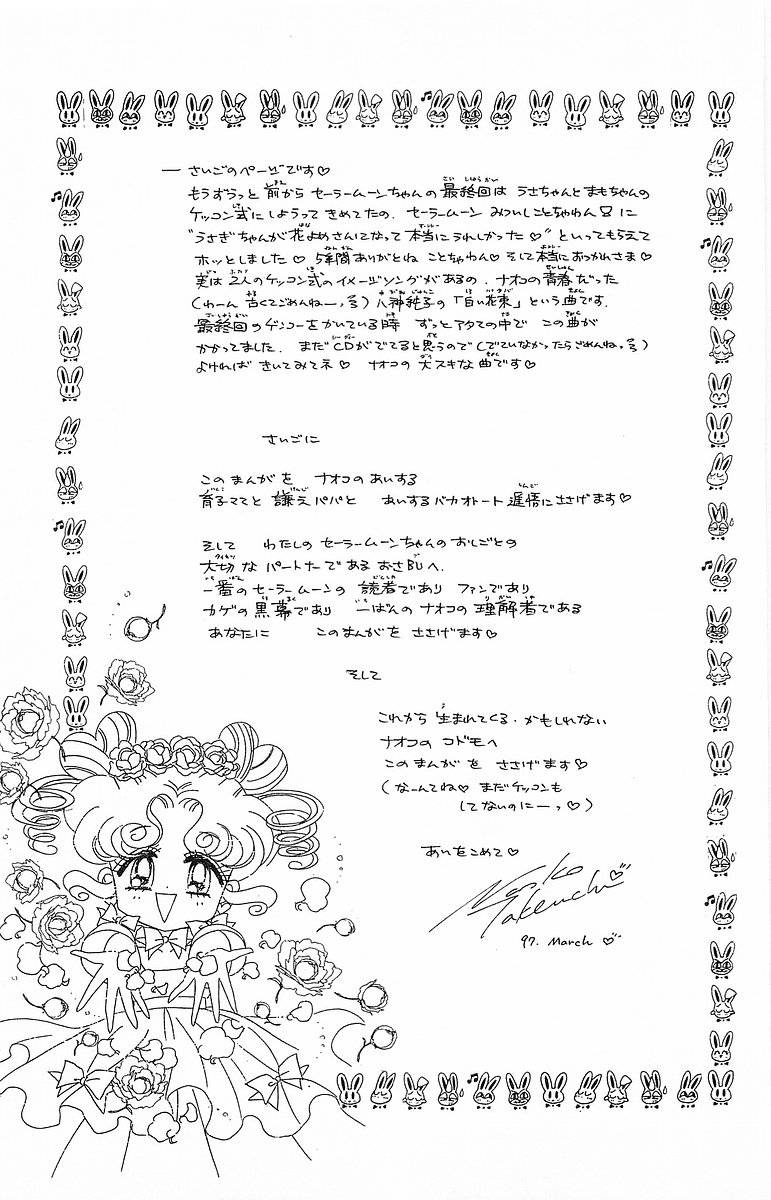 — さいごのページです♡
もうずうっと前からセーラームーンちゃんの最終回は うさちゃんとまもちゃんの
ケッコン式にしようってきめてたの. セーラームーン みついしことちゃわん に
"うさぎちゃんが花よめさんになって本当にうれしかった♡"といってもらえて
ホッとしました♡ 5年間ありがとね ことちゃわん♡ そして本当におつかれさま♡
実は2人のケッコン式のイメージソングがあるの. ナオコの青春だった
(わーん 古くてごめんねー,) 八神純子の「白い花束」という曲です.
最終回のゲンコーをかいている時 ずっとアタマの中で この曲が
かかってました. まだCDがでてると思うので(でていなかったらごめんね,)
よければきいてみてネ♡ ナオコの大スキな曲です♡
さいごに
このまんがを ナオコのあいする
育子ママと 謙えパパと あいするバカオトート 遅悟にささげます♡
そして わたしのセーラームーンちゃんのおしごとの
大切なパートナーである おさBUへ.
一番のセーラームーンの 読者であり ファンであり
カゲの黒幕であり 一ばんのナオコの理解者である
あなたに このまんがを ささげます♡
そして
これから 生まれてくる・かもしれない
ナオコの コドモへ
このまんがを ささげます♡
(なーんてね♡ まだケッコンも
してないのにーっ♡)
あいをこめて♡
Naoko
Takeuchi
97. March